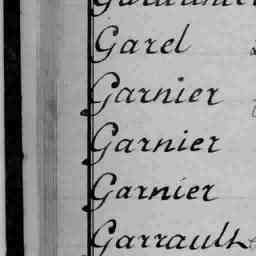 Garel
Garnier
Garnier
Garnier
Garrault